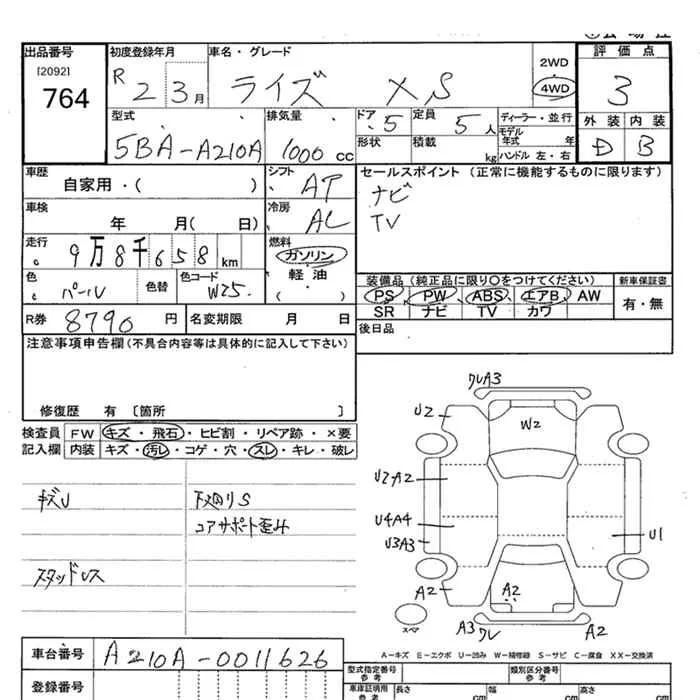 出品番号 初度登録年月 車名・グレード 2WD 4WD 評価点
[2092]
764
R 2 3月 ライズ XS 3
外装 内装
D B
型式 排気量 ドア 定員 ディーラー・並行
5BA-A210A 1000cc 5 5人 モデル年式 年
形状 積載 kg ハンドル 左・右
車歴 シフト セールスポイント (正常に機能するものに限ります)
自家用・( ) AT ナビ
TV
車検 冷房
年 月( 日) AC
走行 燃料
9万8千658km ガソリン
軽・油
( )
色 色替 色コード
パール W25
装備品 (純正品に限り○をつけてください) 新車保証書
PS PW ABS エアB AW 有・無
SR ナビ TV カワ
R券 8790円 名変期限 月 日
後日品
注意事項申告欄(不具合内容等は具体的に記入して下さい)
修復歴 有 〔箇所 〕
検査員 FW キズ・飛石・ヒビ割・リペア跡・×要
記入欄 内装 キズ・汚レ・コゲ・穴・スレ・キレ・破レ
キズU 下廻りS
コアサポート歪み
スタッドレス
ワレA3
U2 W2
U2A2
U4A4
U3A3 U1
A2 A2
A3 ワレ A2
スペア
A-キズ E-エクボ U-凹み W-補修跡 S-サビ C-腐食 XX-交換済
車台番号 A210A-0011626
型式指定番号 参考 類別区分番号 参考
登録番号 車庫証明用 参考 長さ cm 幅 cm 高さ cm